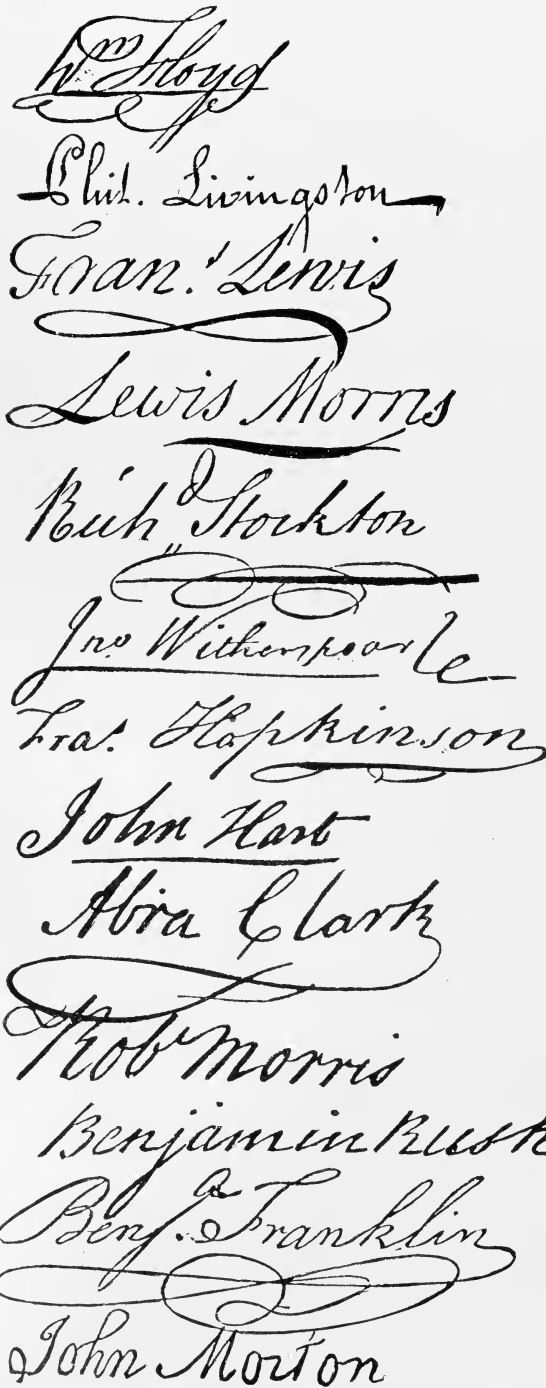 Wm Floyd
Phil. Livingston
Frans. Lewis
Lewis Morris
Richd Stockton
Jno Witherspoon
Fras. Hopkinson
John Hart
Abra Clark
Robt Morris
Benjamin Rush
Benja. Franklin
John Morton